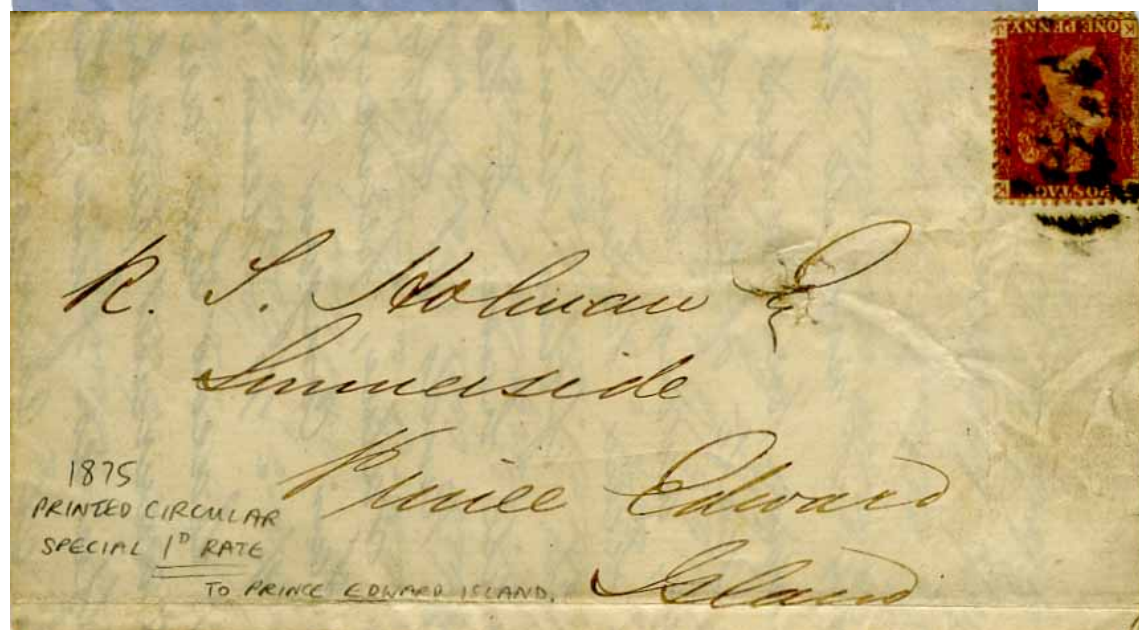 ONE PENNY
K
POSTAG
R. T. Holman E
Summerside
Prince Edward
Island
1875
PRINTED CIRCULAR
SPECIAL 1D RATE
TO PRINCE EDWARD ISLAND.